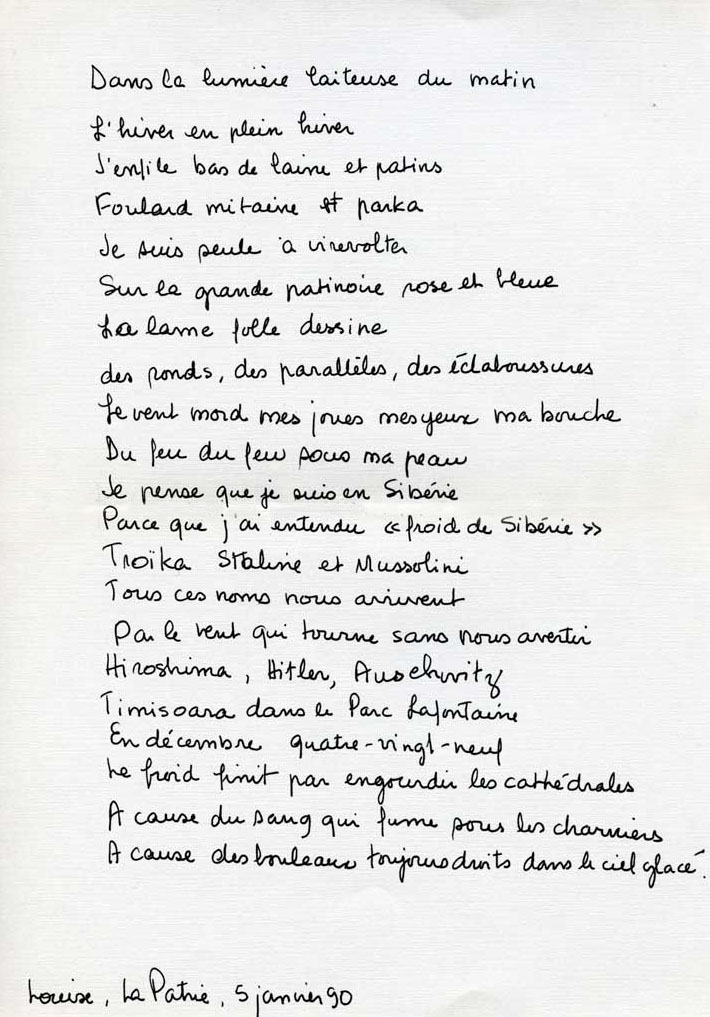 Dans la lumière laiteuse du matin
L'hiver en plein hiver
J'enfile bas de laine et patins
Foulard mitaine et parka
Je suis seule à virevolter
Sur la grande patinoire rose et bleue
La lame folle dessine
des ronds, des parallèles, des éclaboussures
Le vent mord mes joues mes yeux ma bouche
Du feu du feu sous ma peau
Je pense que je suis en Sibérie
Parce que j'ai entendu « froid de Sibérie »
Troïka Staline et Mussolini
Tous ces noms nous arrivent
Par le vent qui tourne sans nous avertir
Hiroshima, Hitler, Auschwitz
Timisoara dans le Parc Lafontaine
En décembre quatre-vingt-neuf
Le froid finit par engourdir les cathédrales
A cause du sang qui fume sous les charniers
A cause des bouleaux toujours droits dans le ciel glacé.
Louise, La Patrie, 5 janvier 90